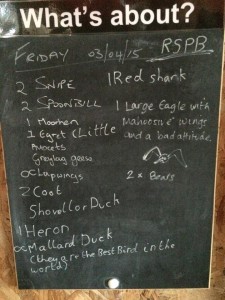 What's about?
FRIDAY 03/04/15 RSPB
2 SNIPE
2 SPOONBILL
1 Moorhen
1 Egret (Little
Avocets
Greylag geese
Lapwings
2 Coot
Shovellor Duck
1 Heron
Mallard Duck
(they are the Best Bird in the
world)
1 Red shank
1 Large Eagle with
Mahoosive wings
and a bad attitude
2 x Bears